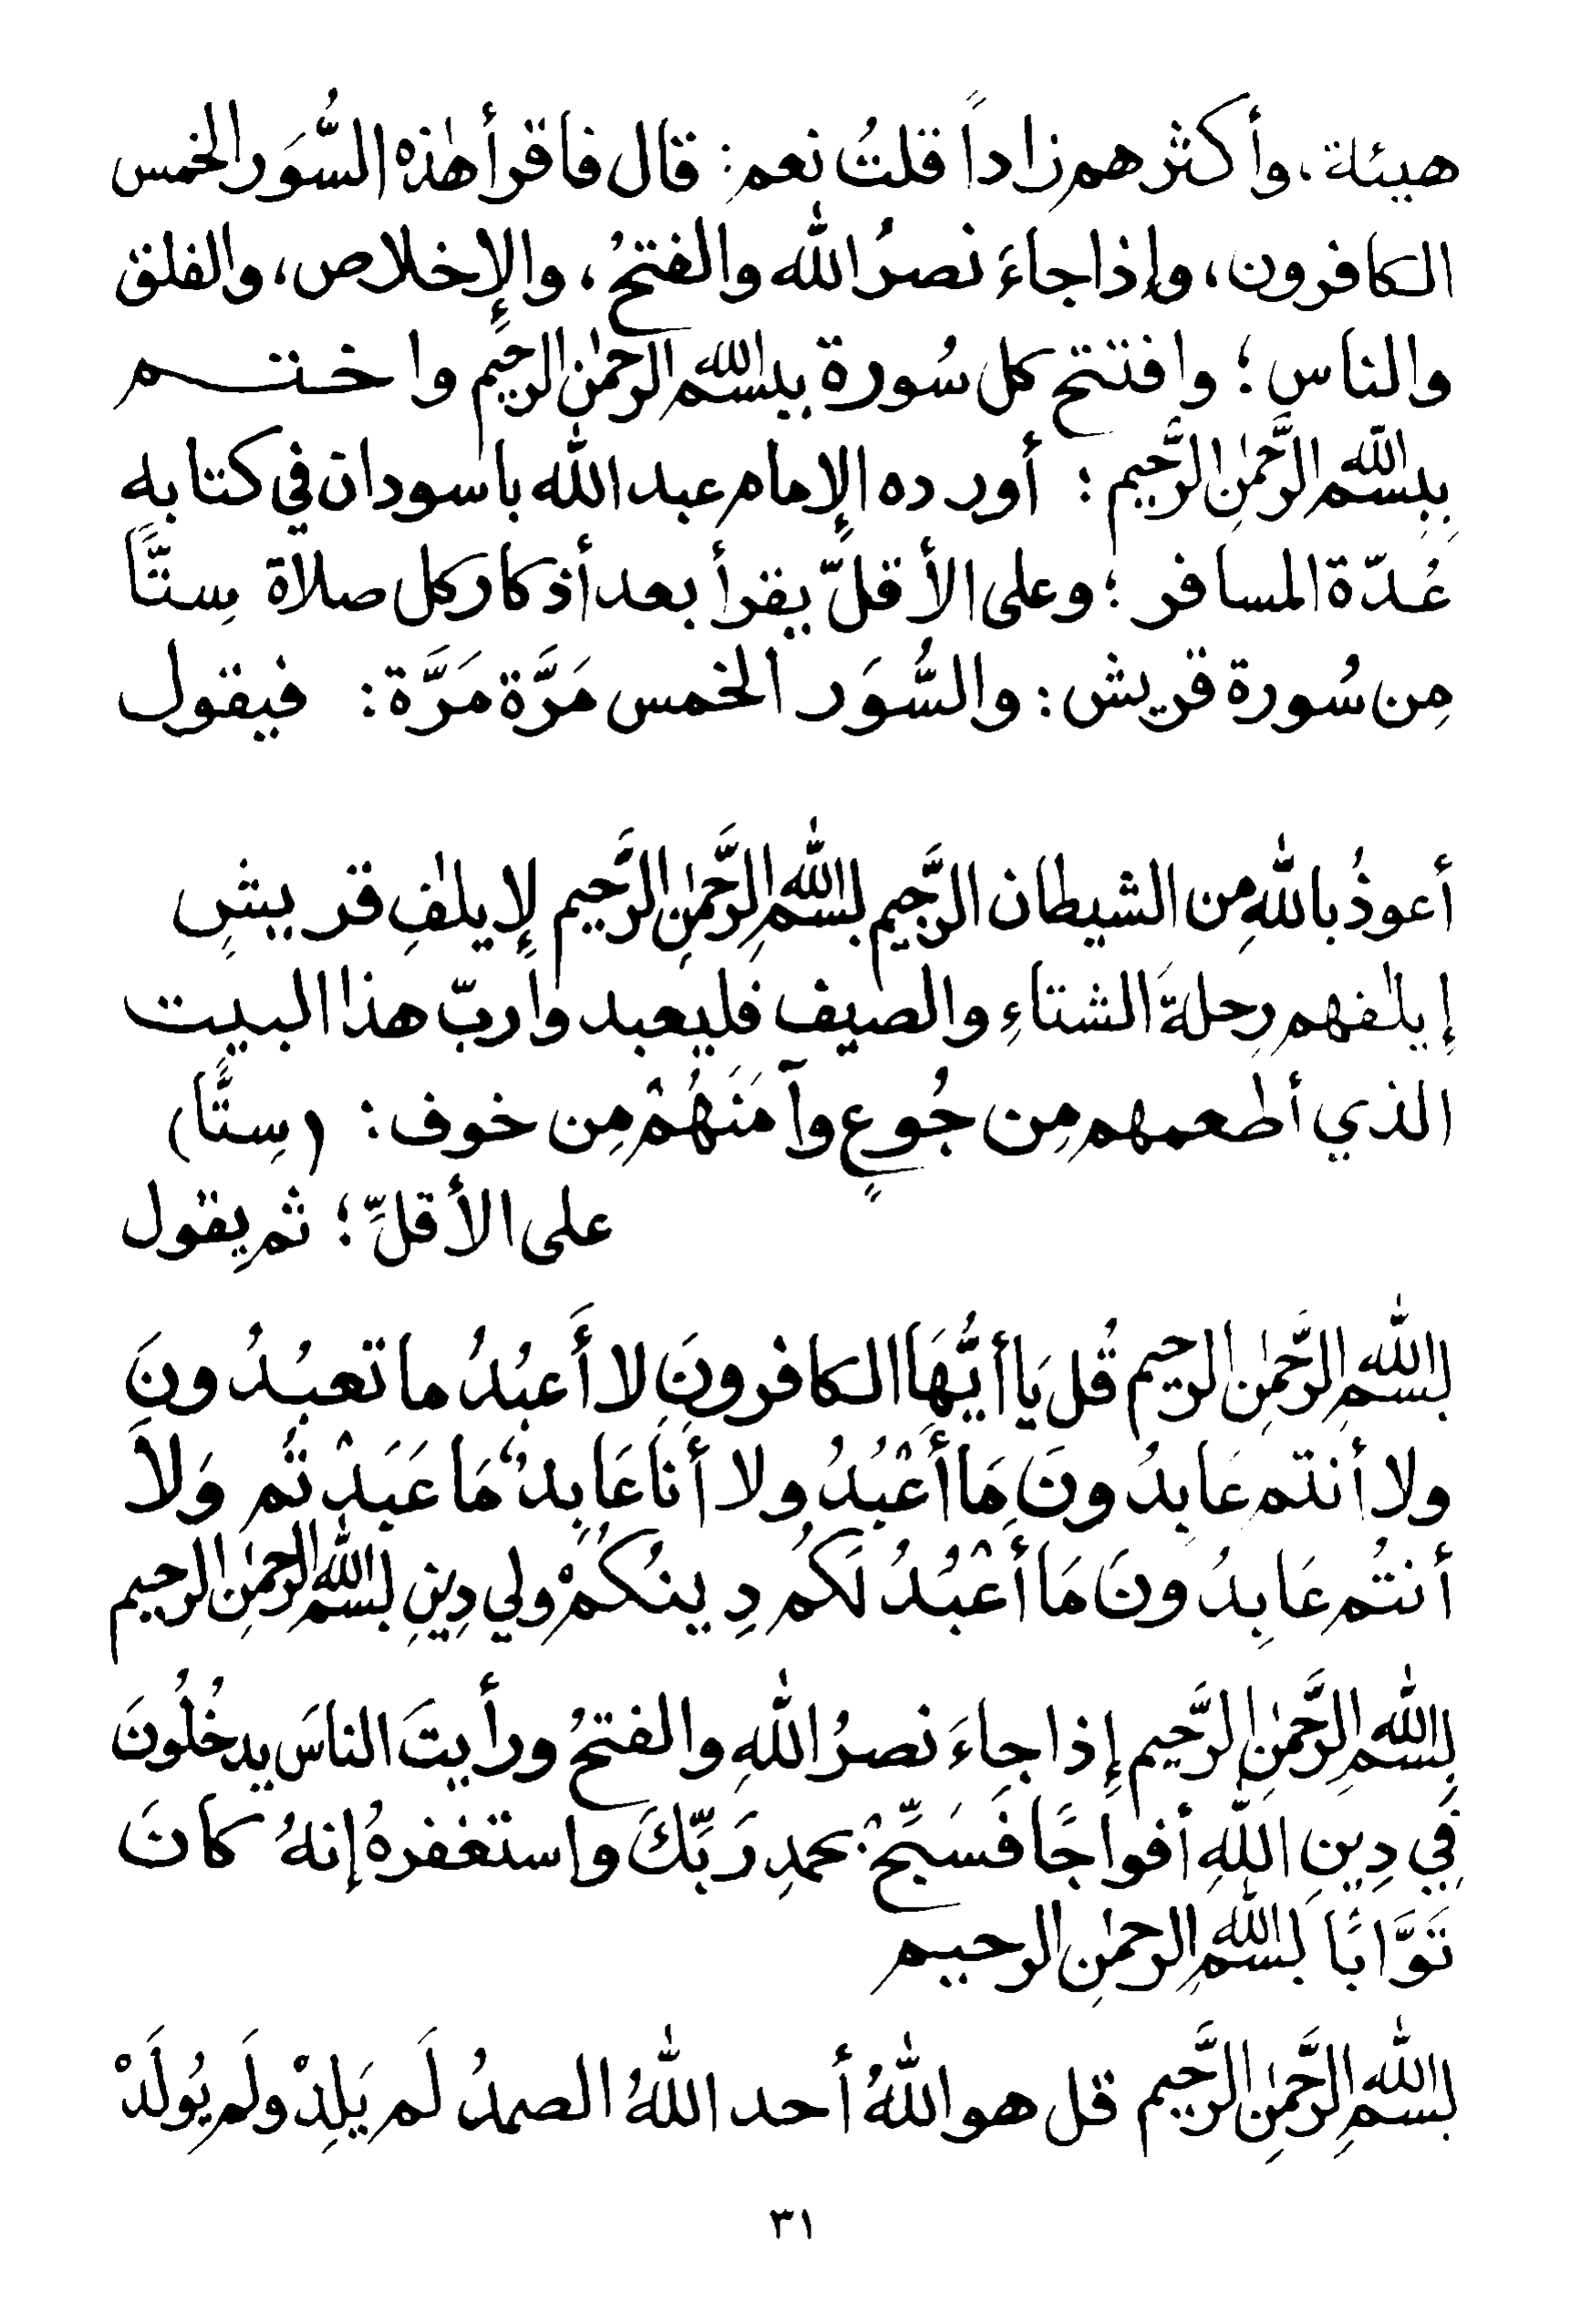 هيئة، وأكثرهم زاداً قلتُ نعم: قال فاقرأ هٰذه السُّوَر الخمس
الكافرون، وإذا جاءَ نصرُ الله والفتحُ، والإخلاص، والفلق
والناس؛ وافتتح كل سُورة ببسم الله الرحمٰن الرحيم واختم
بِبِسم الله الرَّحمٰنِ الرَّحيم: أورده الإمام عبد الله باسودان في كتابه
عُدّة المسافر؛ وعلى الأقلّ يقرأ بعد أذكار كل صلاة سِتًّا
مِن سُورة قريش: والسُّوَر الخمس مَرَّة مَرَّة: فيقول
أعوذُ باللهِ مِن الشيطان الرَّجيم بسم اللهِ الرَّحمٰنِ الرَّحيم لِإيلٰفِ قريشٍ
إيلٰفهم رِحلةَ الشتاءِ والصيف فليعبدوا ربّ هذا البيت
الذي أطعمهم مِن جُوعٍ وآمَنَهُمْ مِن خوف: (سِتًّا)
على الأقلِّ؛ ثم يقول
بسمِ اللهِ الرَّحمٰنِ الرحيم قُل يَا أيُّهَا الكافرونَ لا أَعبُدُ ما تعبُدُونَ
ولا أنتم عَابِدُونَ مَا أَعْبُدُ ولا أنَا عَابِدٌ مَا عَبَدْتُم وَلا
أنتُم عَابِدُونَ مَا أعْبُدُ لَكُم دِينُكُمْ ولي دِينِ بسمِ اللهِ الرحمٰنِ الرحيم
بِسمِ اللهِ الرَّحمٰنِ الرَّحيم إذا جاءَ نصرُ اللهِ والفتحُ ورأيتَ الناسَ يدخُلُونَ
فِي دِينِ اللهِ أفواجًا فَسَبِّحْ بحمدِ رَبِّكَ واستغفرهُ إنهُ كانَ
تَوَّابًا بسمِ اللهِ الرحمٰنِ الرحيم
بسمِ اللهِ الرَّحمٰنِ الرَّحيم قل هو اللهُ أحد اللهُ الصمدُ لَم يَلِدْ ولَم يُولَدْ
٣١